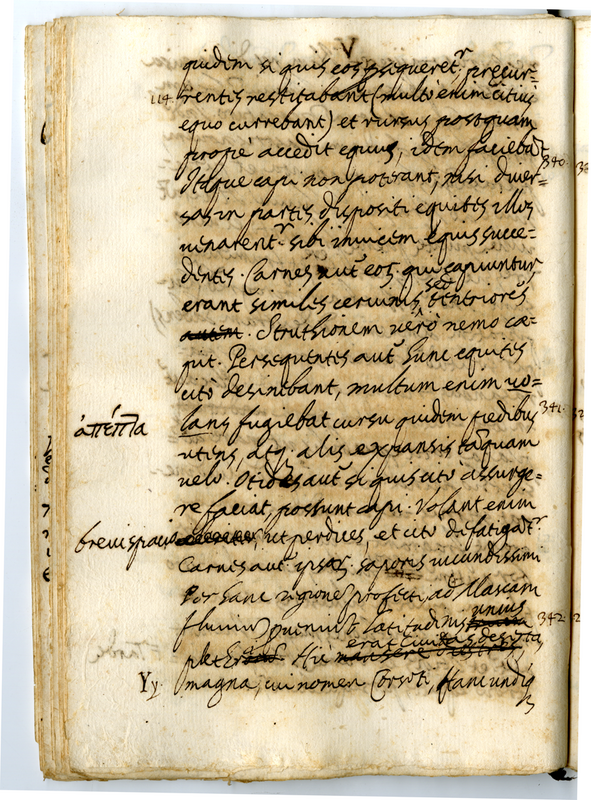 V
quidem si quis eos persequeret^r, precur=
114 rentes restitabant (multo enim citius
equo currebant) et rursus postquam
propè accedit equus, idem faciebāt
340.
Itaque capi non poterant, nisi diver=
sas in partes dispositi equites illos
venarent^r sibi invicem equis succe=
dentes. Carnes aut eoȝ qui capiuntur
erant similes cervinis, sed teneriores
autem. Struthionem verò nemo cæ=
pit. Persequentes aut hunc equites
citò desinebant, multum enim vo=
lans fugiebat cursu quidem pedibus
341.
ἀπέπλα
utens, atq; alis expansis tāquam
velo. Otides aut si quis cito assurge=
re faciat, possunt capi. Volant enim
brevi spacio ut perdices, et cito defatigāt^r.
Carnes aut ipsaȝ saporis iucundissimi
Per hanc regionē profecti, ad Mascam
fluviū perveniūt latitudinis unius
342
plethri. Hic erat civitas deserta,
Yy. magna, cui nomen Corsoti, Hanc undiq